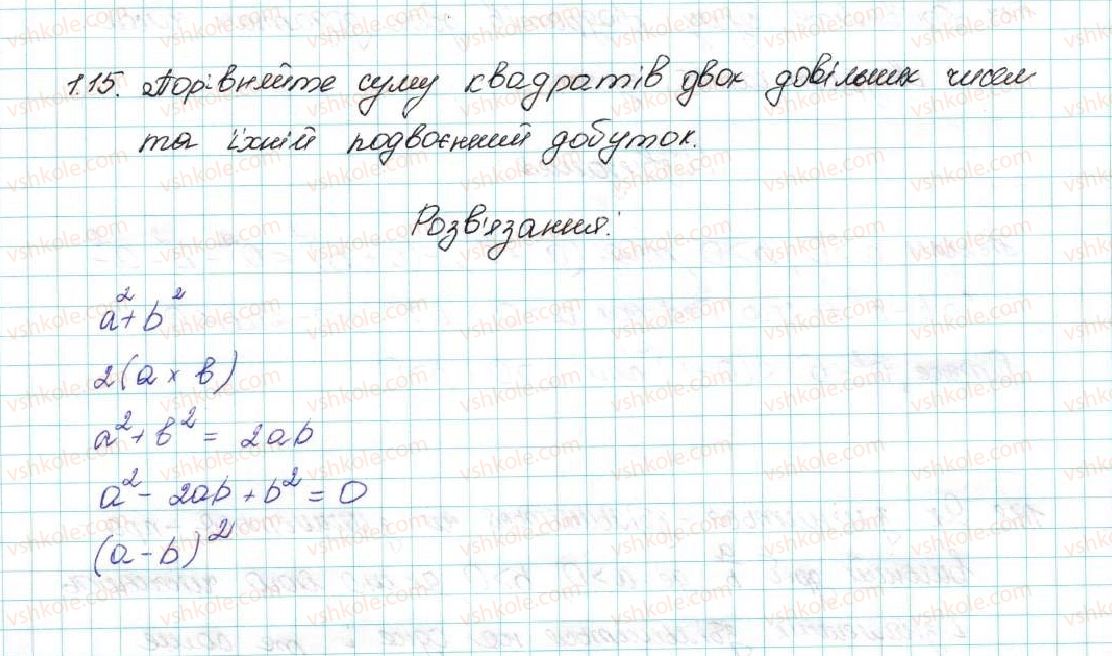 1.15. Порівняйте суму квадратів двох довільних чисел
та їхній подвоєнний добуток.
Розв'язання:
a²+b²
2(a × b)
a²+b² = 2ab
a² - 2ab + b² = 0
(a - b)²